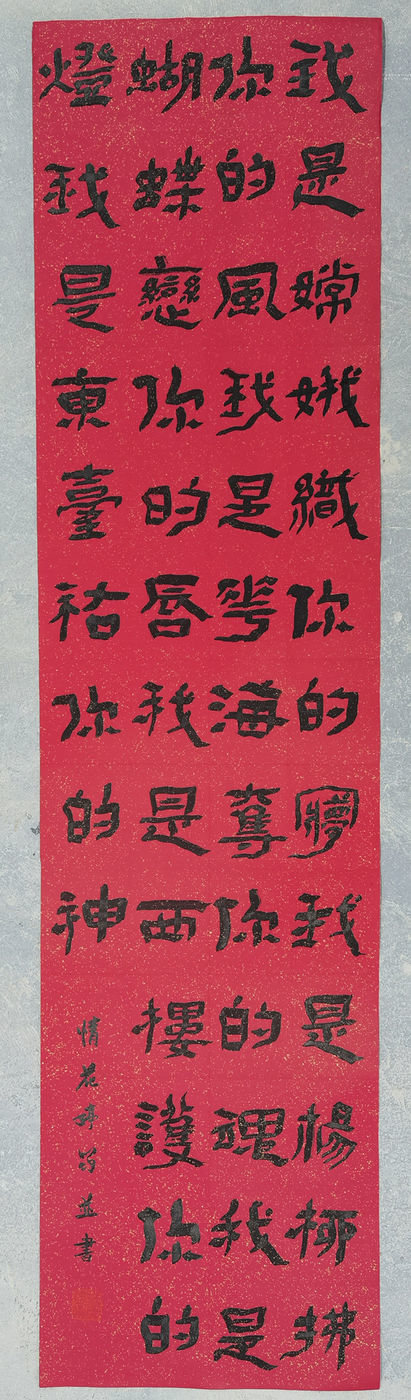 我是嫦娥織你的夢我是楊柳拂
你的風我是花海奪你的魂我是
蝴蝶戀你的唇我是西樓護你的
燈我是東臺祐你的神
情花並書